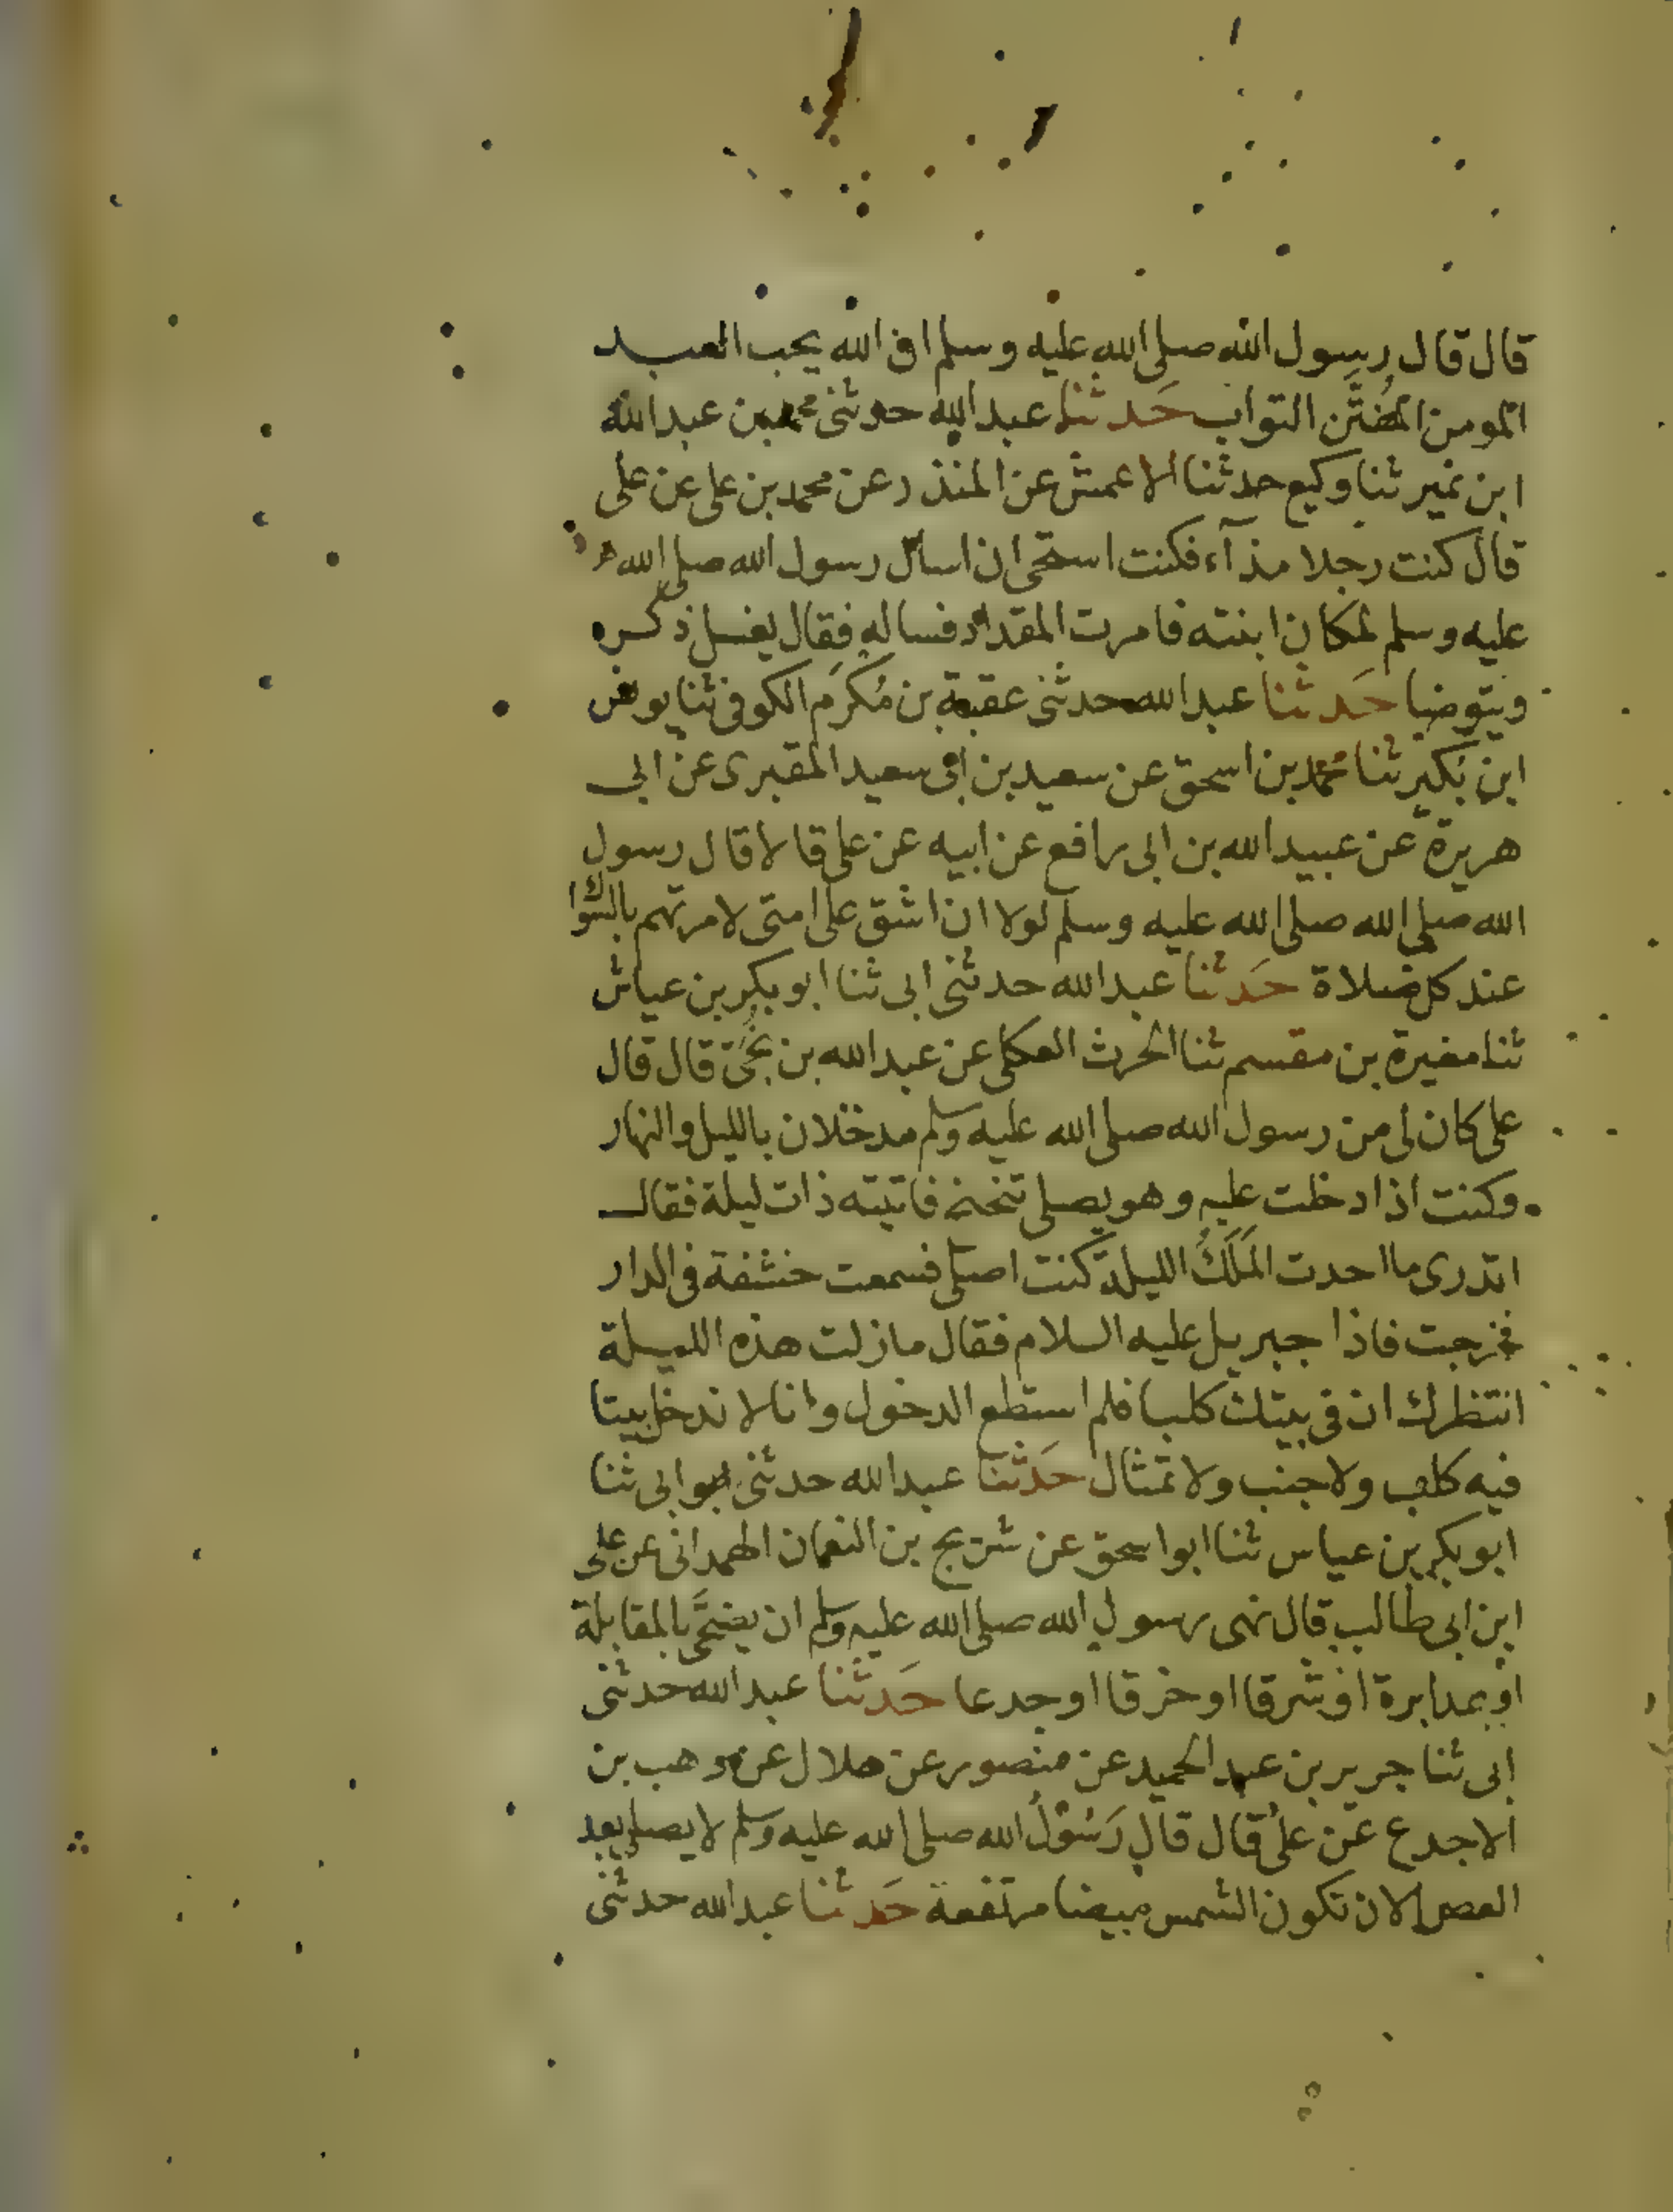 قال قال رسول الله صلى الله عليه وسلم ان الله يحب العبد
المومن المُفَتَّن التواب حَدثنا عبد الله حدثنى محمد بن عبد الله
ابن نمير ثنا وكيع حدثنا الاعمش عن المنذر عن محمد بن على عن على
قال كنت رجلا مذآء فكنت استحى ان اسال رسول الله صلى الله
عليه وسلم لمكان ابنته فامرت المقداد فساله فقال يغسل ذكره
ويتوضا حَدثنا عبد الله حدثنى عقبة بن مُكرَم الكوفى ثنا يونس
ابن بُكير ثنا محمد بن اسحق عن سعيد بن ابى سعيد المقبرى عن ابى
هريرة عن عبيد الله بن ابى رافع عن ابيه عن على قالا قال رسول
الله صلى الله صلى الله عليه وسلم لولا ان اشق على امتى لامرتهم بالسواك
عند كل صلاة حَدثنا عبد الله حدثنى ابى ثنا ابو بكر بن عياش
ثنا مغيرة بن مقسم ثنا الحرث العكلى عن عبد الله بن نُجَىّ قال قال
على كان لى من رسول الله صلى الله عليه وسلم مدخلان بالليل والنهار
وكنت اذا دخلت عليه وهو يصلى تنحنح فاتيته ذات ليلة فقال
اتدرى ما احدث المَلَكُ الليلة كنت اصلى فسمعت خشفة فى الدار
فخرجت فاذا جبريل عليه السلام فقال ما زلت هذه الليلة
انتظرك ان فى بيتك كلبا فلم استطع الدخول وانا لا ندخل بيتا
فيه كلب ولا جنب ولا تمثال حَدثنا عبد الله حدثنى ابى ثنا
ابو بكر بن عياس ثنا ابو اسحق عن شريح بن النعمان الهمدانى عن على
ابن ابى طالب قال نهى رسول الله صلى الله عليه وسلم ان يضحَّى بالمقابلة
او بمدابرة او شرقا او خرقا او جدعا حَدثنا عبد الله حدثنى
ابى ثنا جرير بن عبد الحميد عن منصور عن هلال عن وهب بن
الاجدع عن على قال قال رَسُوْلُ الله صلى الله عليه وسلم لا يصلى بعد
العصر الا ان تكون الشمس بيضا مرتفعة حَدثنا عبد الله حدثنى